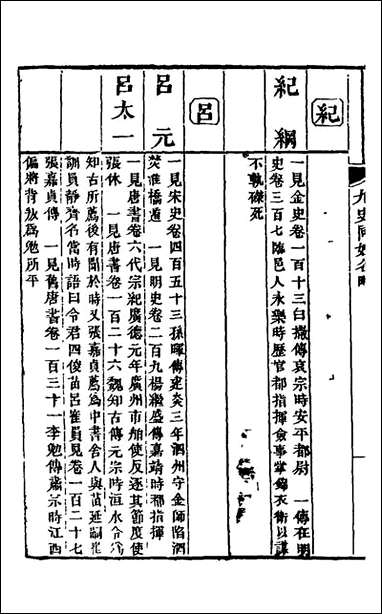 九史同姓名略
紀
紀綱
一見金史卷一百十三白撒傳哀宗時安平都尉　一傳在明
史卷三百七臨邑人永樂時歷官都指揮僉事掌錦衣衛以謀
不軌磔死
呂
呂元
一見宋史卷四百五十三孫暉傳建炎三年泗州守金師陷泗
焚淮橋遁　一見明史卷二百九楊繼盛傳嘉靖時都指揮
呂太一
一見唐書卷六代宗紀廣德元年廣州市舶使反逐其節度使
張休　一見唐書卷一百二十六魏知古傳元宗時洹水令為
知古所薦後有聞於時又張嘉貞薦為中書舍人與苗延嗣崔
訓員靜齊名當時語曰令君四俊苗呂崔員見卷一百二十七
張嘉貞傳　一見舊唐書卷一百三十一李勉傳肅宗時江西
偏將背叛為勉所平